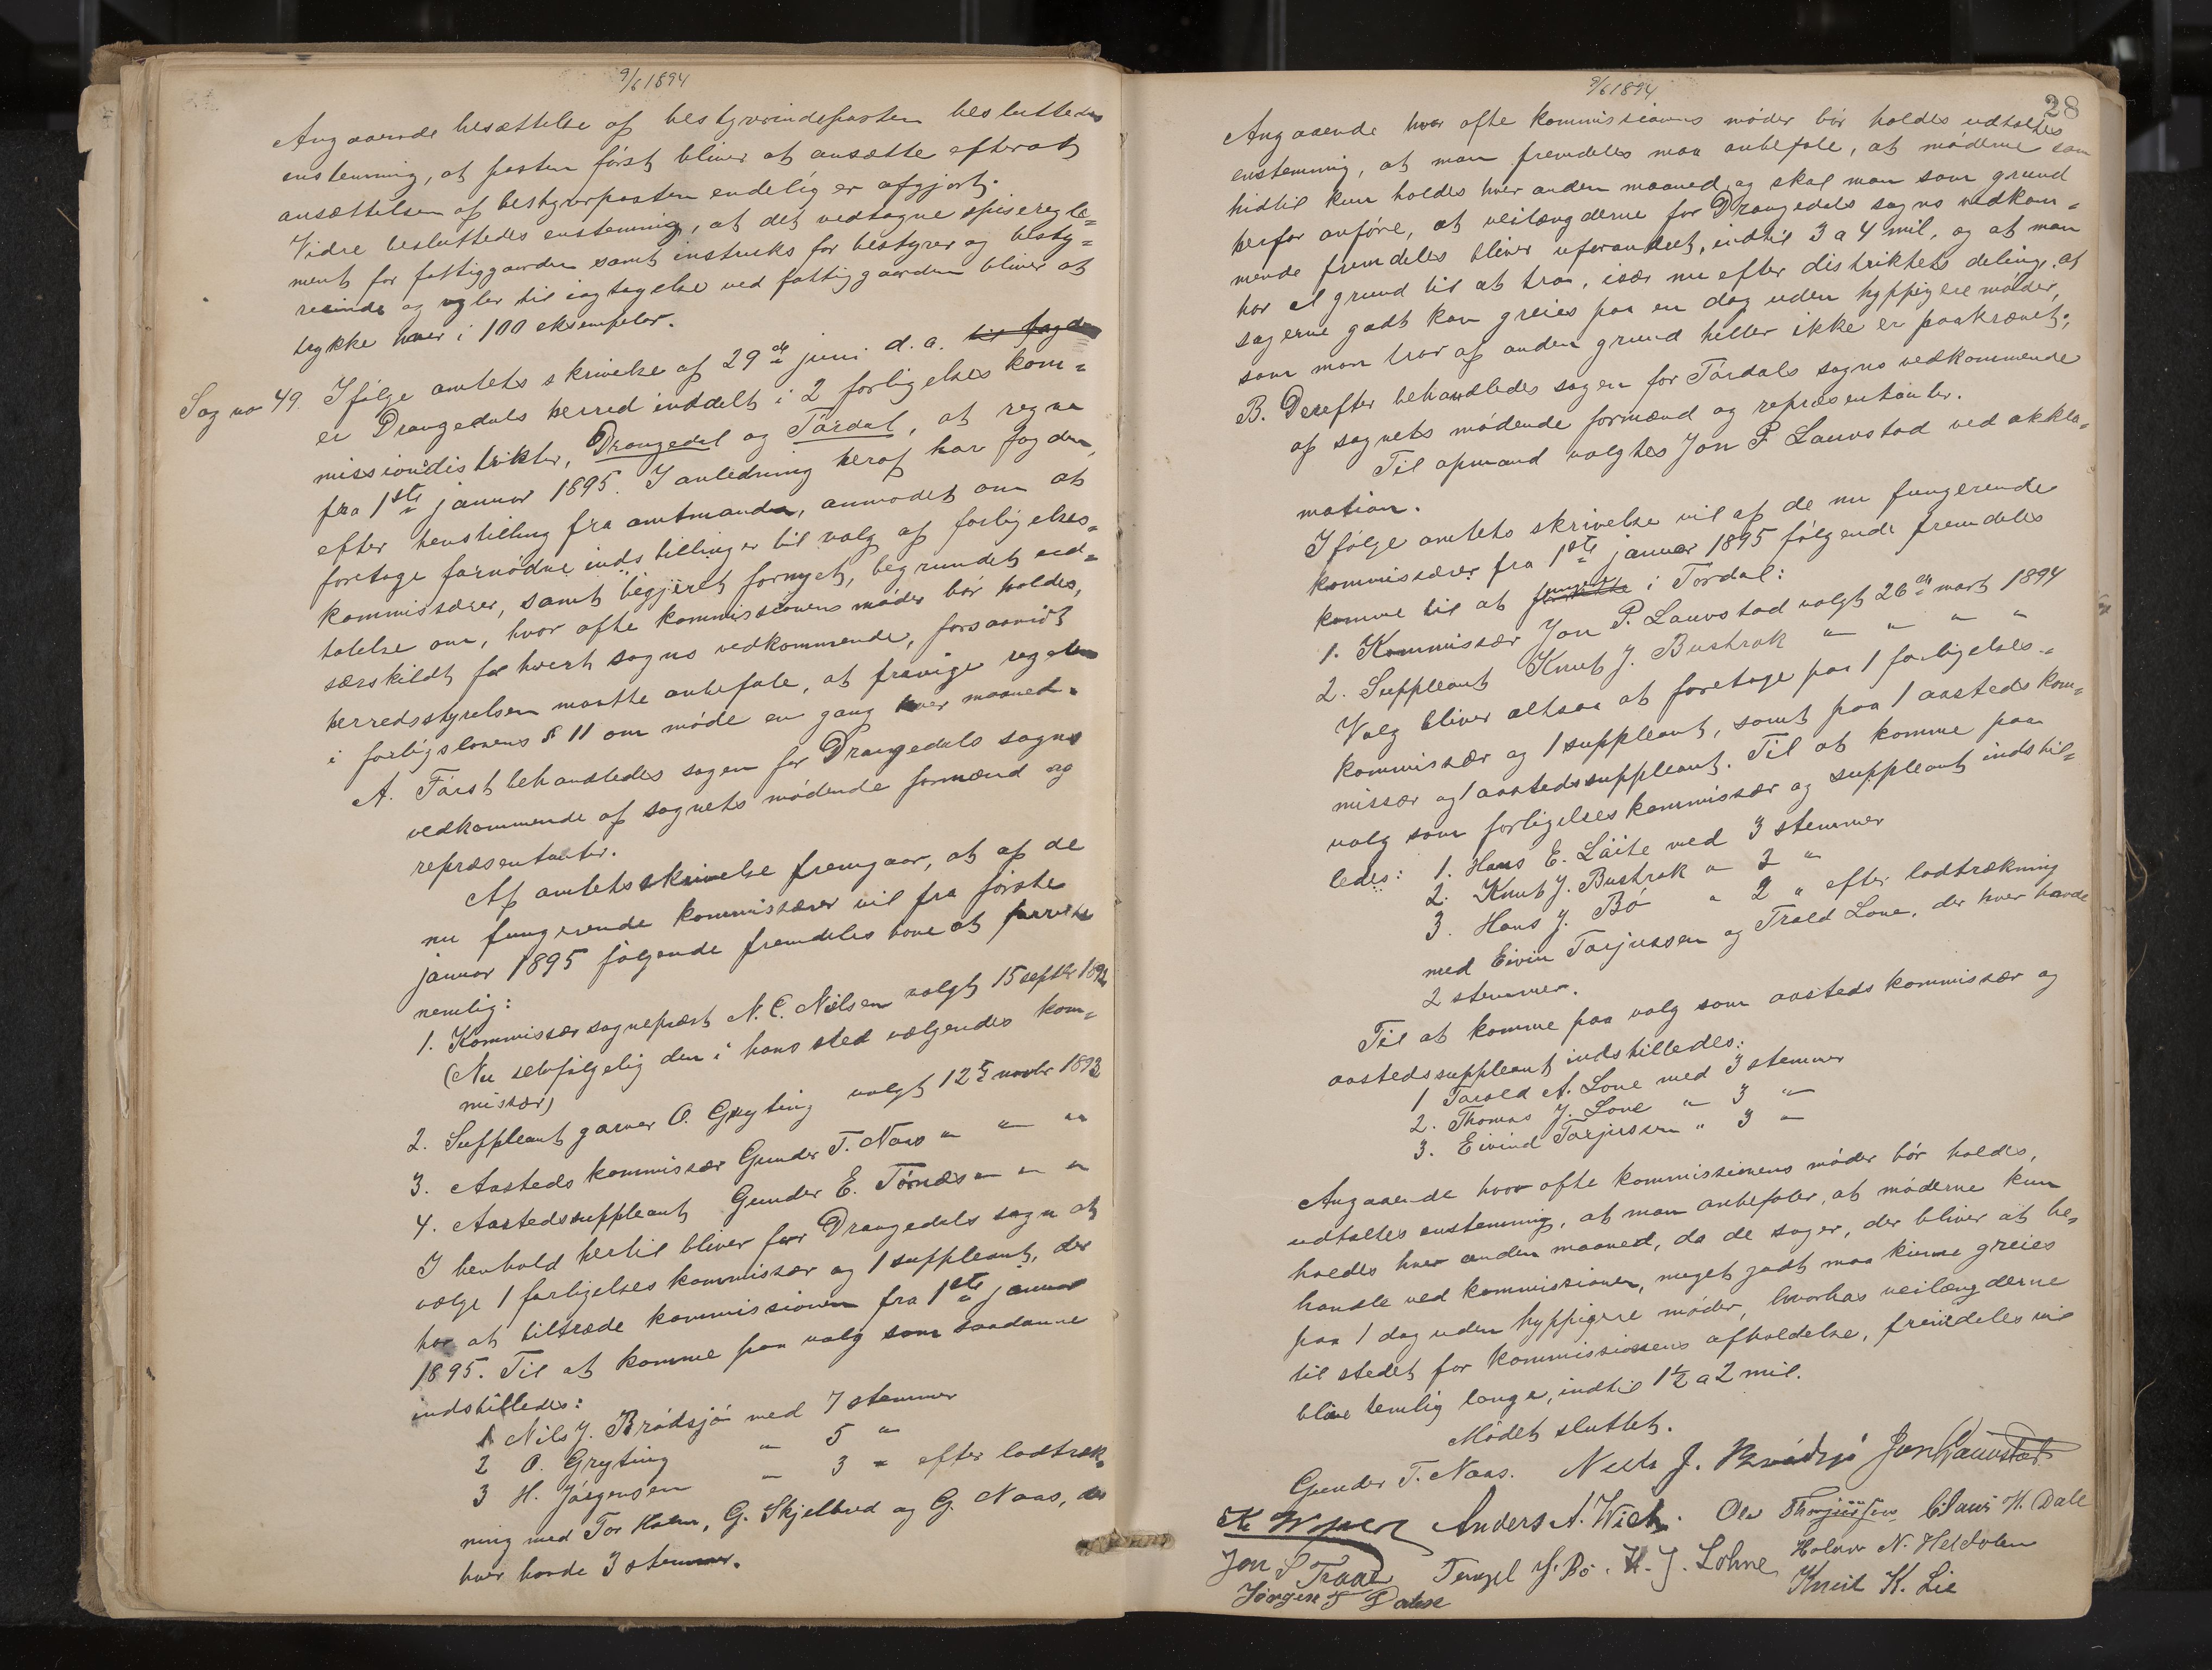 9/6 1894
Angaaende besættelse af bestyrerindeposten besluttedes
enstemmig, at posten först bliver at ansætte efterat
ansættelsen af bestyrerposten endelig er afgjort.
Vidre besluttedes enstemmig, at det vedtagne spiseregle=
ment for fattiggaarden samt instruks for bestyrer og besty=
rerinde og regler til iagtagelse ved fattiggaarden bliver at
trykke hver i 100 eksempler.
Sag no 49. Ifölge amtets skrivelse af 29de juni d. a. til fogden
er Drangedals herred inddelt i 2 forligelses kom=
missionsdistrikter, Drangedal og Tördal, at regne
fra 1ste januar 1895. I anledning heraf har fogden,
efter henstilling fra amtmanden, anmodet om at
foretage fornödne indstillinger til valg af forligelses=
kommissærer, samt begjæret fornyet, begrundet ud=
talelse om, hvor ofte kommissionens möder bör holdes,
særskildt for hvert sogns vedkommende, forsaavidt
herredsstyrelsen maatte anbefale, at fravige regelen
i forligslovens § 11 om möde en gang hver maaned.
A. Först behandledes sagen for Drangedals sogns
vedkommende af sognets mödende formænd og
repræsentanter.
Af amtets skrivelse fremgaar, at af de
nu fungerende kommissærer vil fra förste
januar 1895 fölgende fremdeles have at forrette
nemlig:
1. Kommissær sogneprest N. C. Nielsen valgt 15 septbr 1892
(Nu selvfölgelig den i hans sted vælgendes kom=
missær)
2. Suppleant garver O. Gryting valgt 12te novbr 1892
3. Aasteds kommissær Gunder T. Naas " " "
4. Aastedssuppleant Gunder E. Törnæs " " "
I henhold hertil bliver for Drangedals sogn at
vælge 1 forligelses kommissær og 1 suppleant, der
har at tiltræde kommissionen fra 1ste januar
1895. Til at komme paa valg som saadanne
indstilledes:
1 Nils J. Brödsjö med 7 stemmer
2 O. Gryting " 5 "
3 H. Jörgensen " 3 " efter lodtræk=
ning med Tor Holm, G. Skjelbred og G. Naas, der
hver havde 3 stemmer.
9/6 1894
28
Angaaende hvor ofte kommissionens möder bör holdes udtaltes
enstemmig, at man fremdeles maa anbefale, at möderne som
hidtil kun holdes hver anden maaned, og skal man som grund
herfor anföre, at veilængderne for Drangedals sogns vedkom=
mende fremdeles bliver uforandret, indtil 3 a 4 mil, og at man
har al grund til at tro, især nu efter distriktets deling, at
sagerne godt kan greies paa en dag uden hyppigere möder,
som man tror af anden grund heller ikke er paakrævet.
B. Derefter behandledes sagen for Tördals sogns vedkommende
af sognets mödende formænd og repræsentanter.
Til opmand valgtes Jon P. Lauvstad ved akkla=
mation.
Ifölge amtets skrivelse vil af de nu fungerende
kommissærer fra 1ste januar 1895 fölgende fremdeles
komme til at fungere i Tördal:
1. Kommissær Jon P. Lauvstad valgt 26de mars 1894
2. Suppleant Knut J. Bustrak " " " "
Valg bliver altsaa at foretage paa 1 forligelses=
kommissær og 1 suppleant, samt paa 1 aasteds kom=
missær og 1 aastedssuppleant. Til at komme paa
valg som forligelseskommissær og suppleant indstil=
ledes: 1. Hans E. Läite med 3 stemmer
2. Knut J. Bustrak " 3 "
3. Hans J. Bö " 2 " efter lodtrækning
med Eivin Tarjussen og Trold Lone, der hver havde
2 stemmer.
Til at komme paa valg som aasteds kommissær og
aastedssuppleant indstilledes:
1 Tarald A. Lone med 3 stemmer
2. Thomas J. Lone " 3 "
3. Eivind Tarjussen " 3 "
Angaaende hvor ofte kommissionens möder bör holdes,
udtaltes enstemmig, at man anbefaler, at möderne kun
holdes hver anden maaned, da de sager, der bliver at be=
handle ved kommissionen, meget godt maa kunne greies
paa 1 dag uden hyppigere möder, hvorhos veilængderne
til stedet for kommissionens afholdelse, fremdeles vil
blive temlig lange, indtil 1½ a 2 mil.
Mödet sluttet.
Gunder T. Naas. Niels J. Brödsjö Jon Lauvstad
Anders A. Wich. Ole Thorjussen Claus H. Dale
Jon S Traaen Tengel J. Bö. K. J. Lohne Halvor N. Heldalen
Jörgen T Dahle Kneut K. Lie